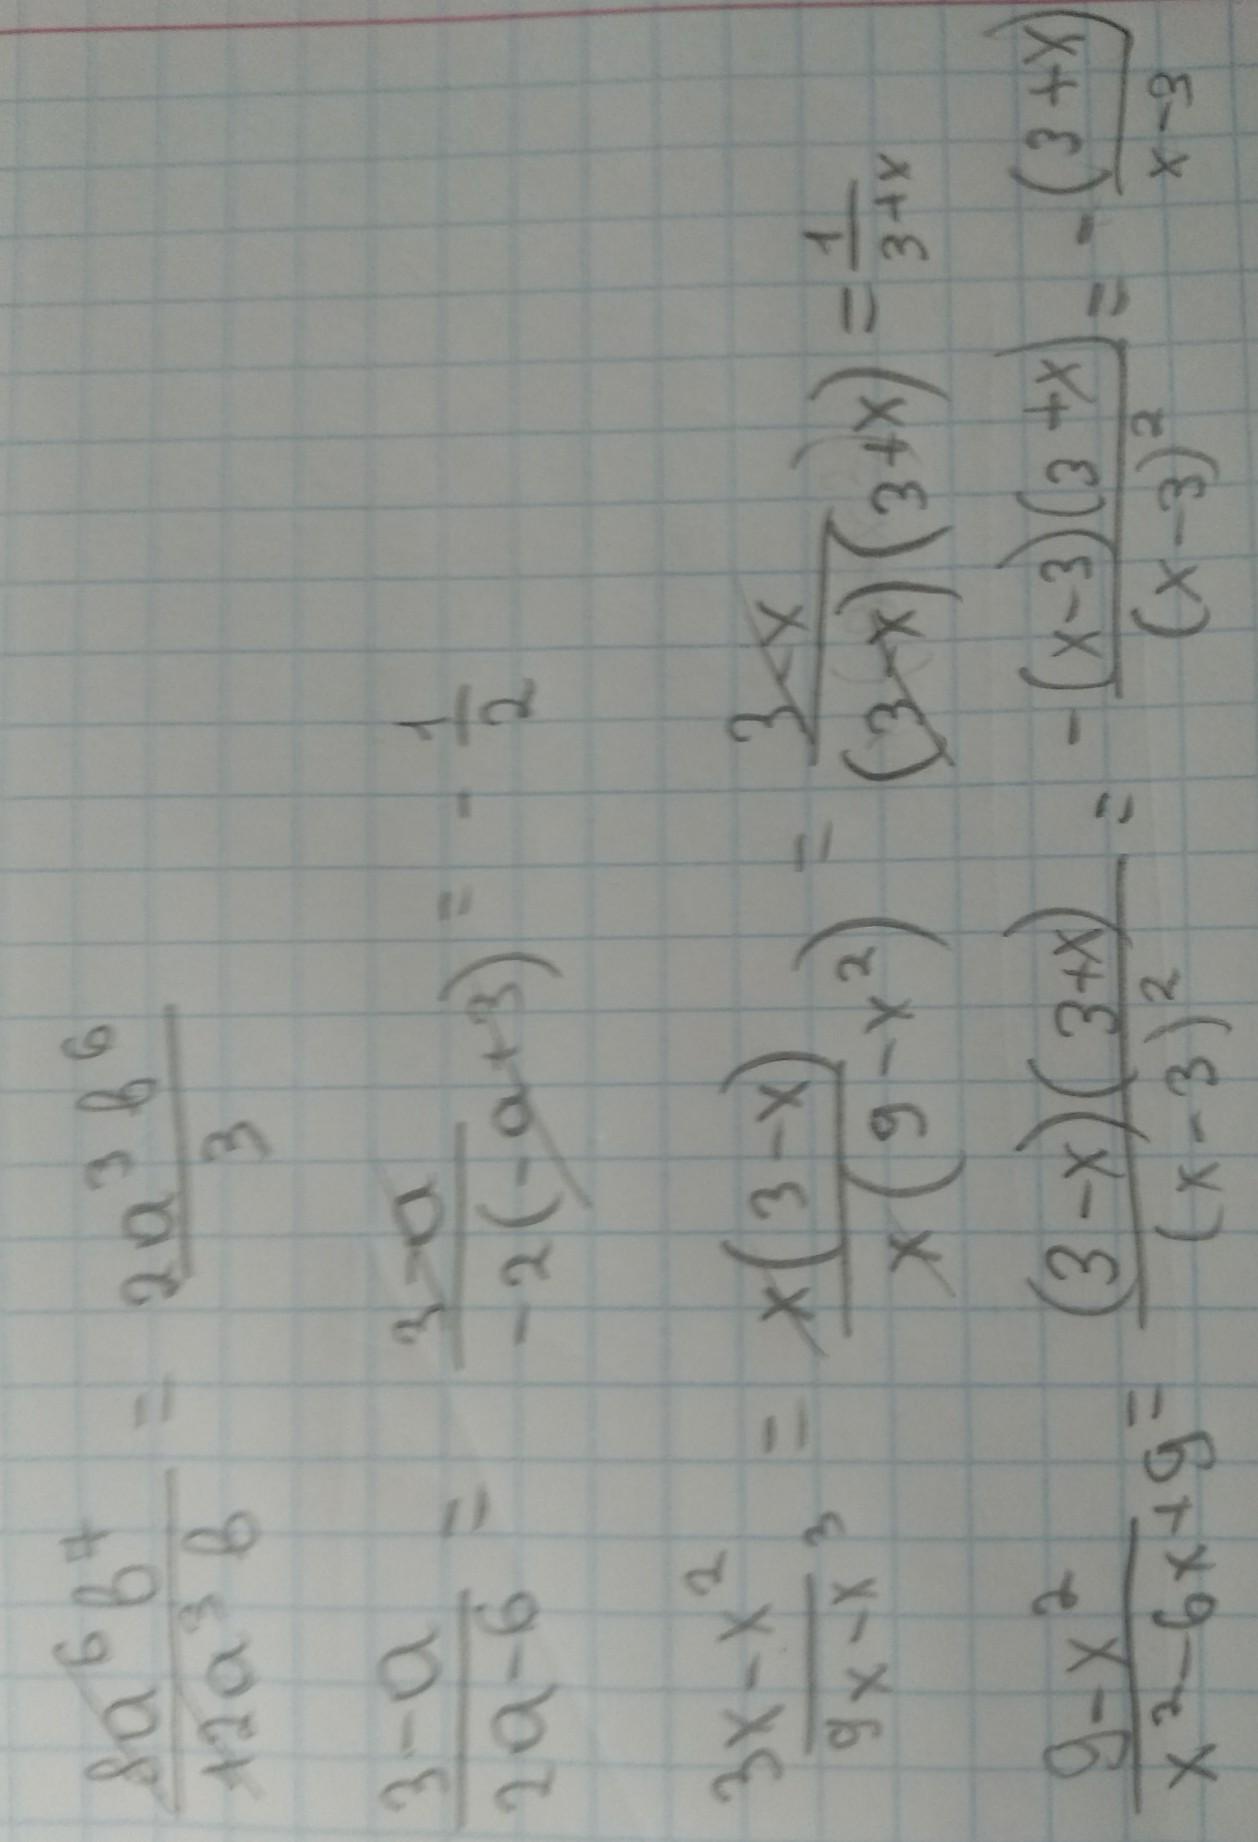 8a⁶b⁷/12a³b = 2a³b⁶/3
3-a/2a-6 = 3-a/-2(-a+3) = -1/2
3x-x²/9x-x³ = x(3-x)/x(9-x²) = 3-x/(3-x)(3+x) = 1/3+x
9-x²/x²-6x+9 = (3-x)(3+x)/(x-3)² = -(x-3)(3+x)/(x-3)² = -(3+x)/x-3